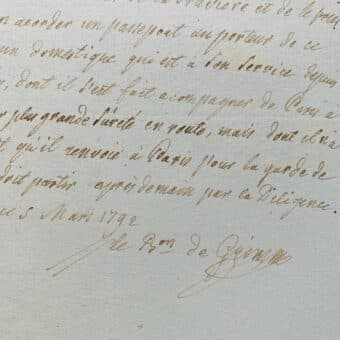 de la Bravoure et de la
accorder un passeport au porteur de ce
un domestique qui est à son Service depuis
dont il s'est fait acompagner de Paris à
plus grande Sureté en route, mais dont il n'a
qu'il renvoie à Paris pour la garde de
doit partir après demain par la Diligence.
ce 5 Mars 1792
le Bon de